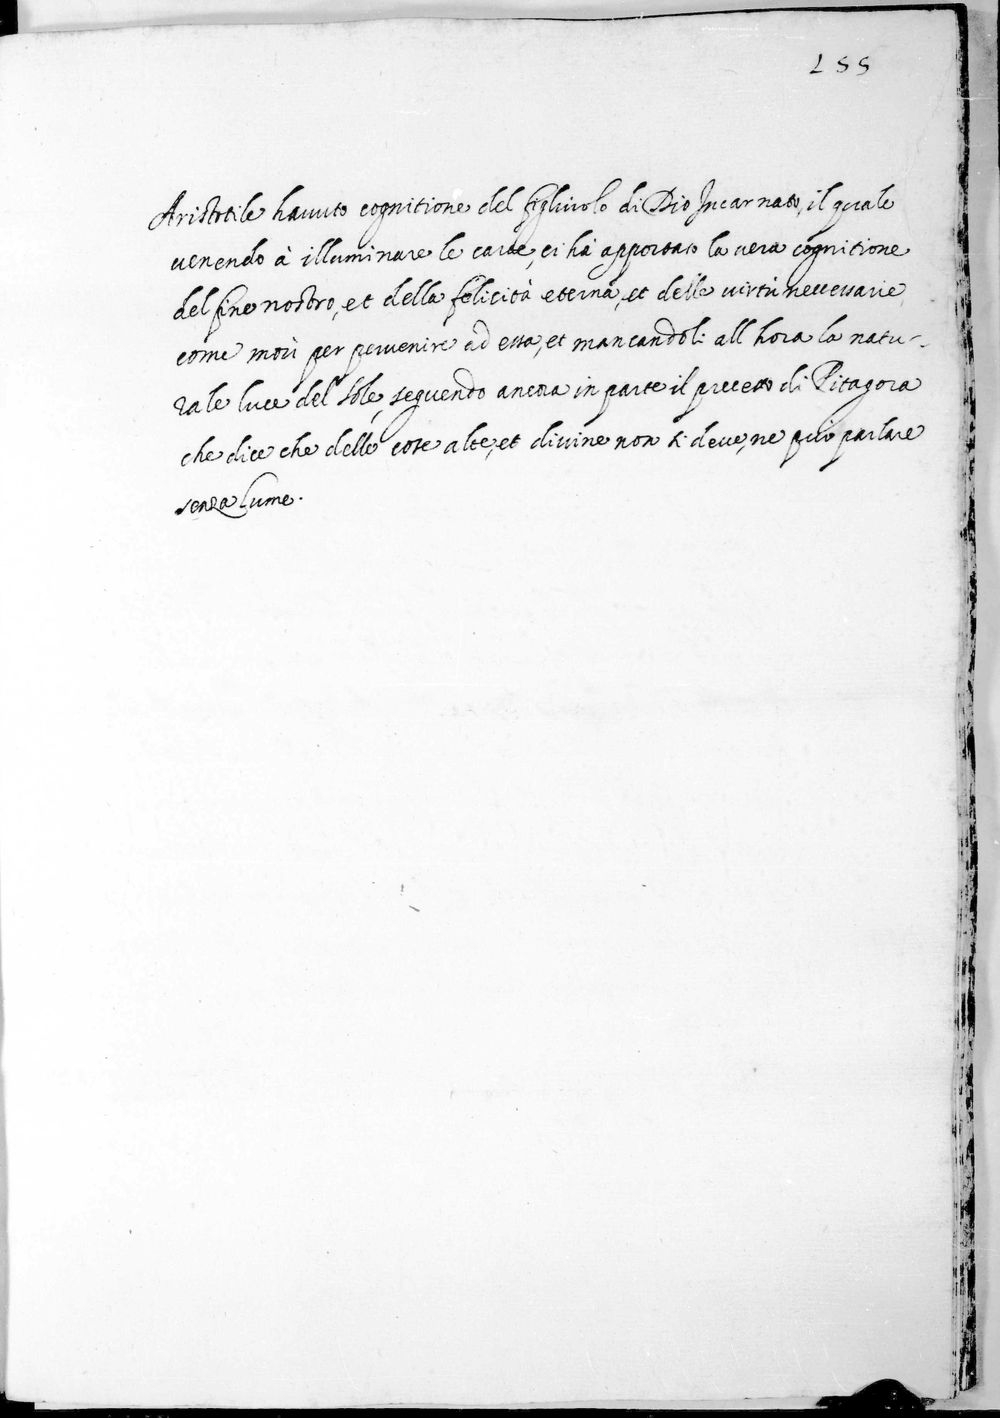 255
Aristotile hauuto cognitione del figliuolo di Dio Incarnato, il quale
uenendo à illuminare le carte, ci hà apportato la uera cognitione
del fine nostro, et della felicità eterna, et delle uirtù necessarie,
come morì per peruenire ad essa, et mancandoli all hora la natu-
rale luce del sole, seguendo ancora in parte il precetto di Pitagora
che dice che delle cose alte, et diuine non si deue, ne può parlare
senza lume.